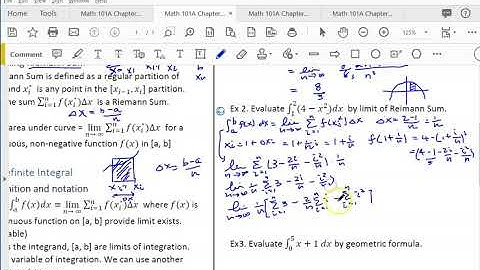 Math 101A Chapter...
Math 101A Chapter...
Math 101A Chapter...
Math 101A Chapter...
125%
Riemann Sum
mann Sum is defined as a regular partition of
and x_i^* is any point in the [x_{i-1}, x_i] partition.
The sum ∑_{i=1}^n f(x_i^*)Δx is a Riemann Sum.
Δx = (b-a)/n
area under curve = lim_{n→∞} ∑_{i=1}^n f(x_i^*)Δx for a
uous, non-negative function f(x) in [a, b]
Δx = (b-a)/n
efinite Integral
nition and notation
∫_a^b f(x)dx = lim_{n→∞} ∑_{i=1}^n f(x_i^*)Δx where f(x) is
nuous function on [a, b] provide limit exists.
is the integrand, [a, b] are limits of integration.
variable of integration. We can use other
n→∞
= 8/3
Ex 2. Evaluate ∫_1^2(4 − x^2)dx by limit of Reimann Sum.
∫_a^b f(x)dx = lim_{n→∞} ∑_{i=1}^n f(x_i^*)Δx Δx = (2-1)/n = 1/n
x_i = 1 + Δx i = 1 + (1/n)i = 1 + i/n f(1 + i/n) = 4 - (1 + i/n)^2
= (4 - 1 - 2i/n - i^2/n^2)
lim_{n→∞} ∑_{i=1}^n (3 - 2i/n - i^2/n^2) 1/n
lim_{n→∞} 1/n ∑_{i=1}^n (3 - 2i/n - i^2/n^2)
lim_{n→∞} 1/n [∑_{i=1}^n 3 - 2/n ∑_{i=1}^n i - ∑_{i=1}^n i^2]
Ex3. Evaluate ∫_0^5 x + 1 dx by geometric formula.